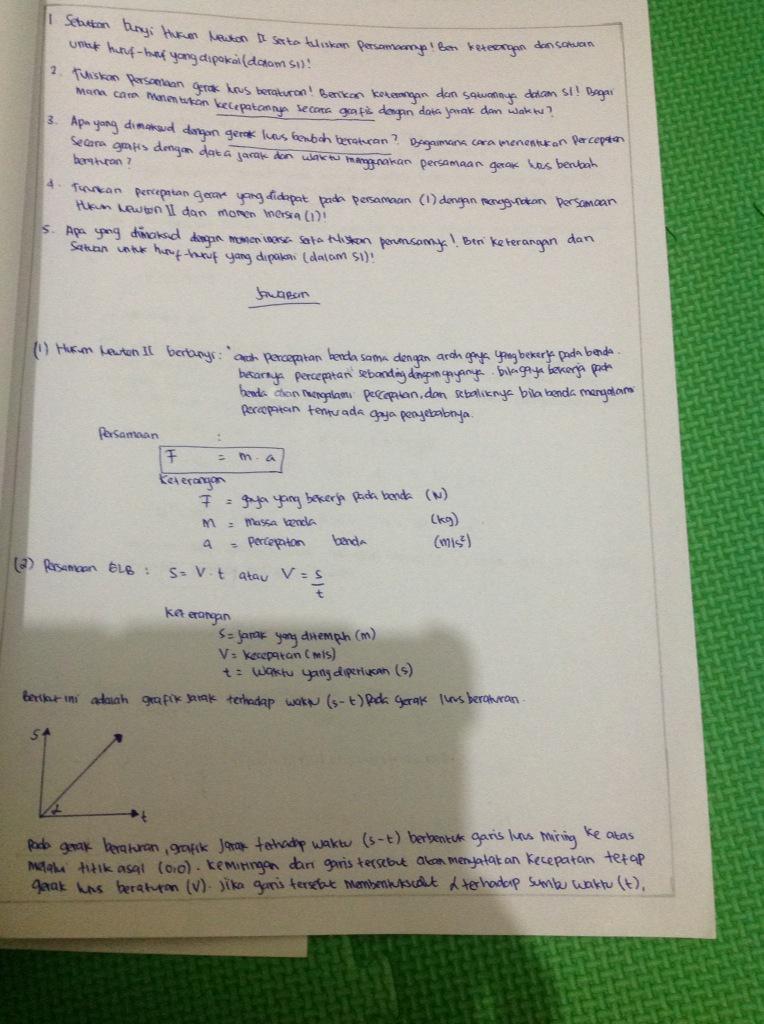 1. Sebutkan bunyi Hukum Newton II serta tuliskan Persamaannya! Beri keterangan dan satuan
untuk huruf-huruf yang dipakai (dalam SI)!
2. Tuliskan Persamaan gerak lurus beraturan! Berikan keterangan dan satuannya dalam SI! Bagai
mana cara menentukan kecepatannya secara grafis dengan data jarak dan waktu?
3. Apa yang dimaksud dengan gerak lurus berubah beraturan? Bagaimana cara menentukan Percepatan
secara grafis dengan data jarak dan waktu menggunakan persamaan gerak lurus berubah
beraturan?
4. Turunkan percepatan gerak yang didapat pada persamaan (1) dengan menggunakan Persamaan
Hukum Newton II dan momen inersia (1)!
5. Apa yang dimaksud dengan momen inersia serta tuliskan perumusannya! Beri keterangan dan
satuan untuk huruf-huruf yang dipakai (dalam SI)!
Jawaban
(1) Hukum Newton II berbunyi : "arah percepatan benda sama dengan arah gaya yang bekerja pada benda.
besarnya percepatan sebanding dengan gayanya. bila gaya bekerja pada
benda akan mengalami percepatan, dan sebaliknya bila benda mengalami
percepatan tentu ada gaya penyebabnya.
Persamaan :
F = m . a
Keterangan
F = gaya yang bekerja pada benda (N)
m = massa benda (kg)
a = percepatan benda (m/s²)
(2) Persamaan GLB : S = V . t atau V = s/t
Keterangan
S = jarak yang ditempuh (m)
V = kecepatan (m/s)
t = waktu yang diperlukan (s)
Berikut ini adalah grafik jarak terhadap waktu (s-t) pada gerak lurus beraturan.
S
α
t
Pada gerak beraturan, grafik jarak terhadap waktu (s-t) berbentuk garis lurus miring ke atas
melalui titik asal (0,0). Kemiringan dari garis tersebut akan menyatakan kecepatan tetap
gerak lurus beraturan (V). Jika garis tersebut membentuk sudut α terhadap sumbu waktu (t),